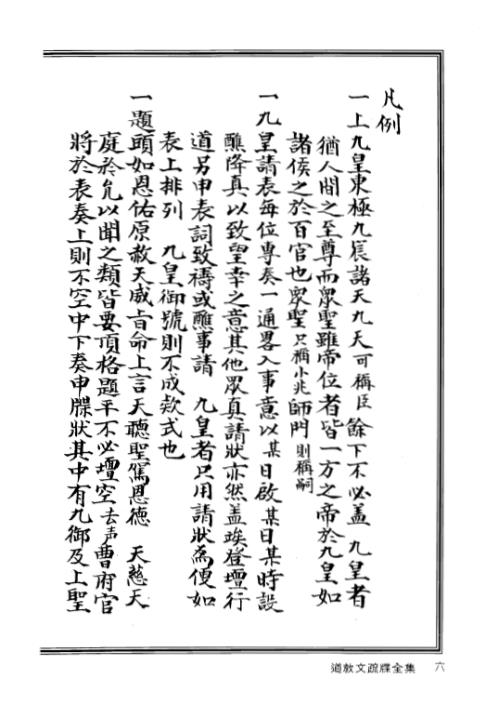 凡例
一上九皇東極九宸諸天九天可稱臣 餘下不必盖 九皇者
猶人間之至尊而眾聖雖帝位者皆一方之帝於九皇如
諸侯之於百官也眾聖只稱小兆師門則稱嗣
一九皇請表每位專奏一通畧入事意以某日啟某日某時設
醮降真以致望幸之意其他眾真請狀亦然盖竢登壇行
道另申表詞致禱或醮事請 九皇者只用請狀為便如
表上排列 九皇御號則不成款式也
一題頭如恩佑原赦天威旨命上言天聽聖駕恩德 天慈天
庭於允以聞之類皆要頂格題平不必壇空去声曹府官
將於表奏上則不空中下奏申牒狀其中有九御及上聖
道教文疏牒全集 六